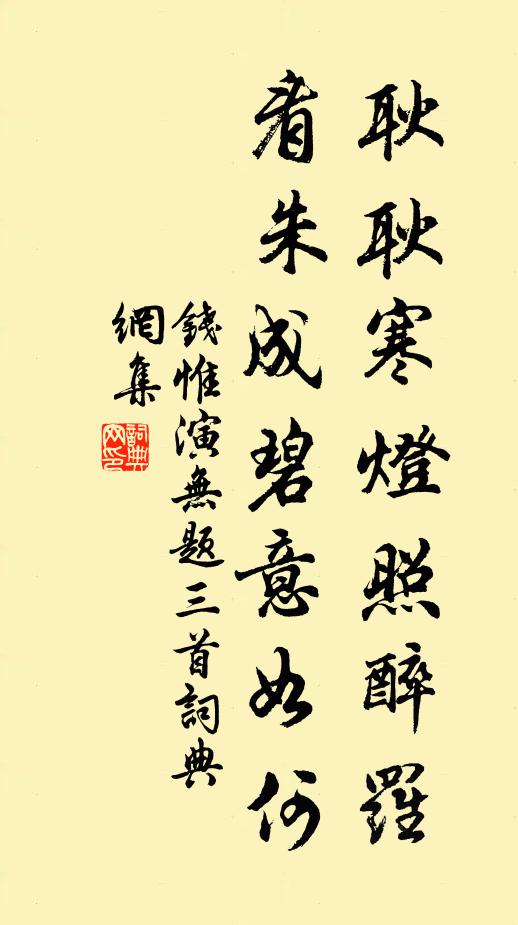 耿耿寒燈照醉羅
看朱成碧意如何
錢惟演無題三首詞典
網集
詞典網印